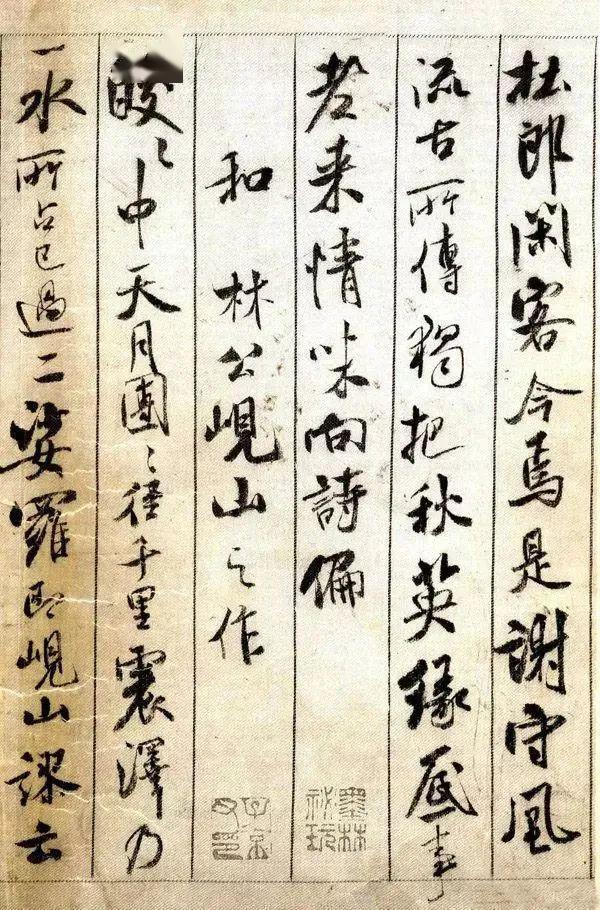 杜郎閑客今焉是謝守風
流古所傳獨把秋英緣底事
老来情味向詩偏
墨林秘玩
和 林公峴山之作
子京父印
皎〻中天月團〻徑千里震澤乃
一水所占已過二娑羅即峴山謬云